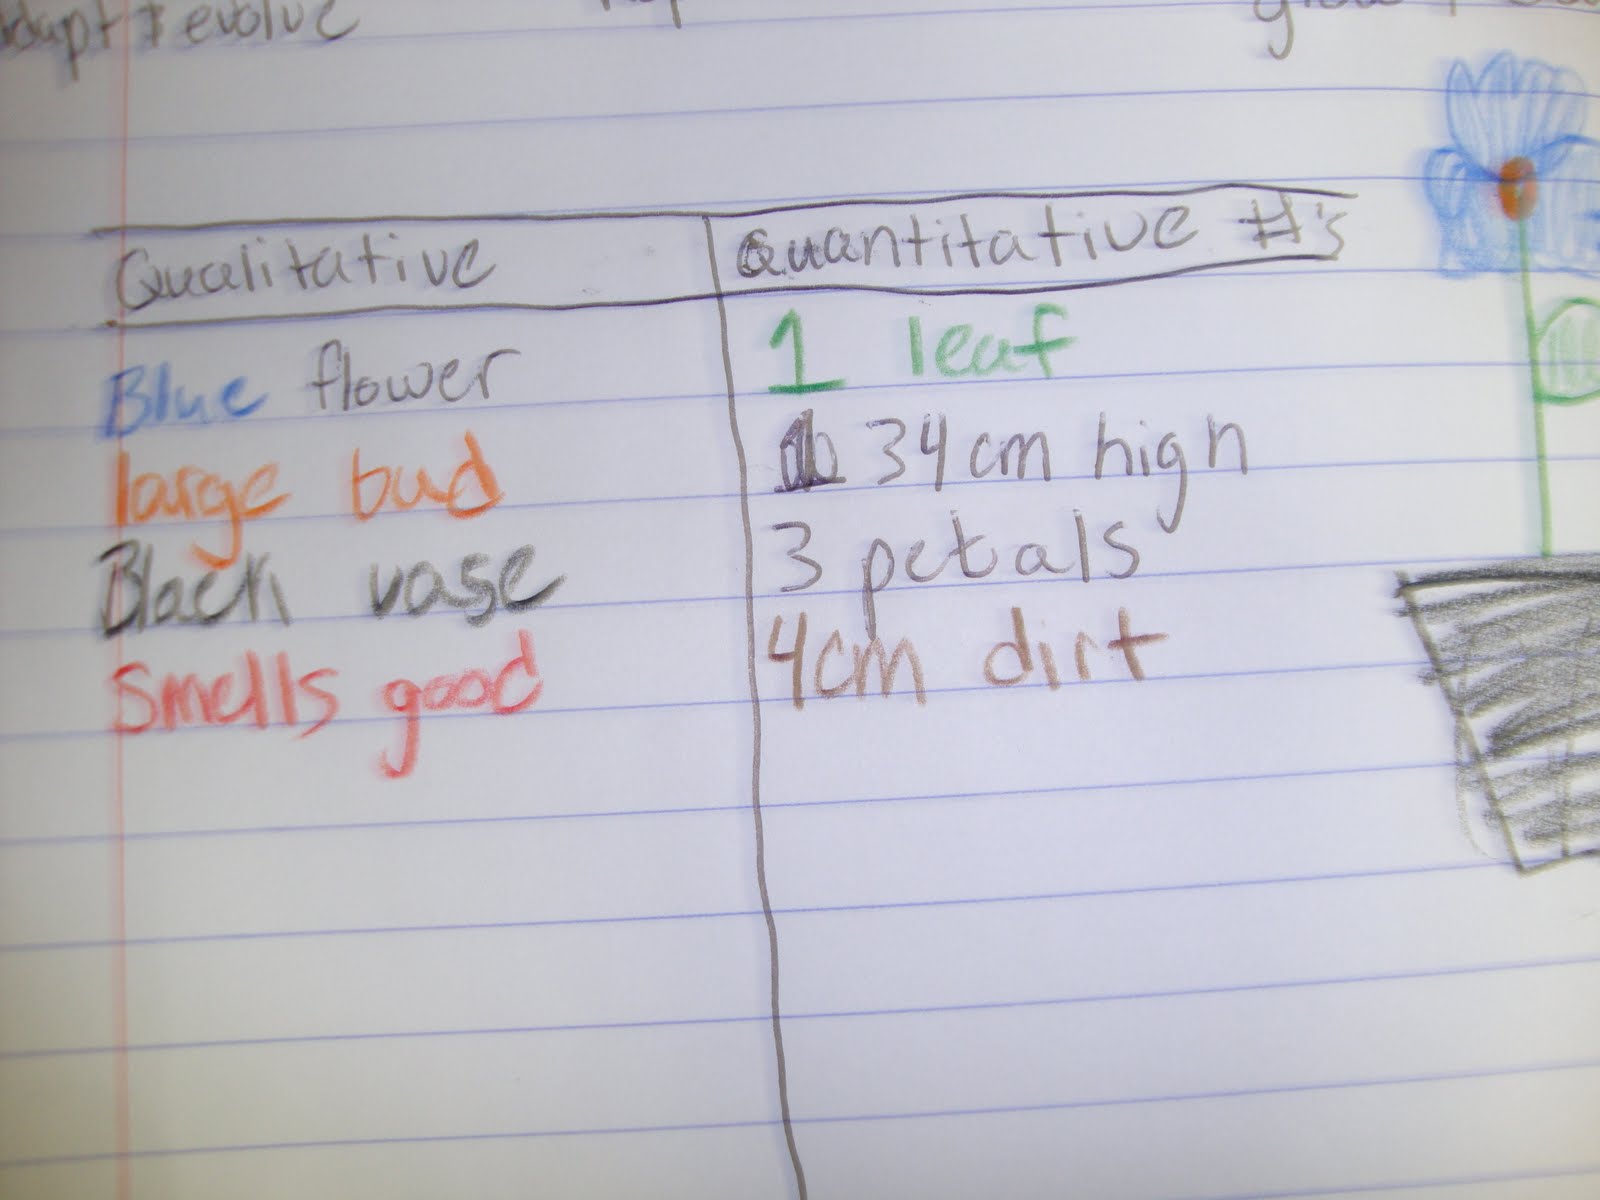 adapt & evolve
Qualitative Quantitative #'s
Blue flower 1 leaf
large bud 34cm high
Black vase 3 petals
Smells good 4cm dirt